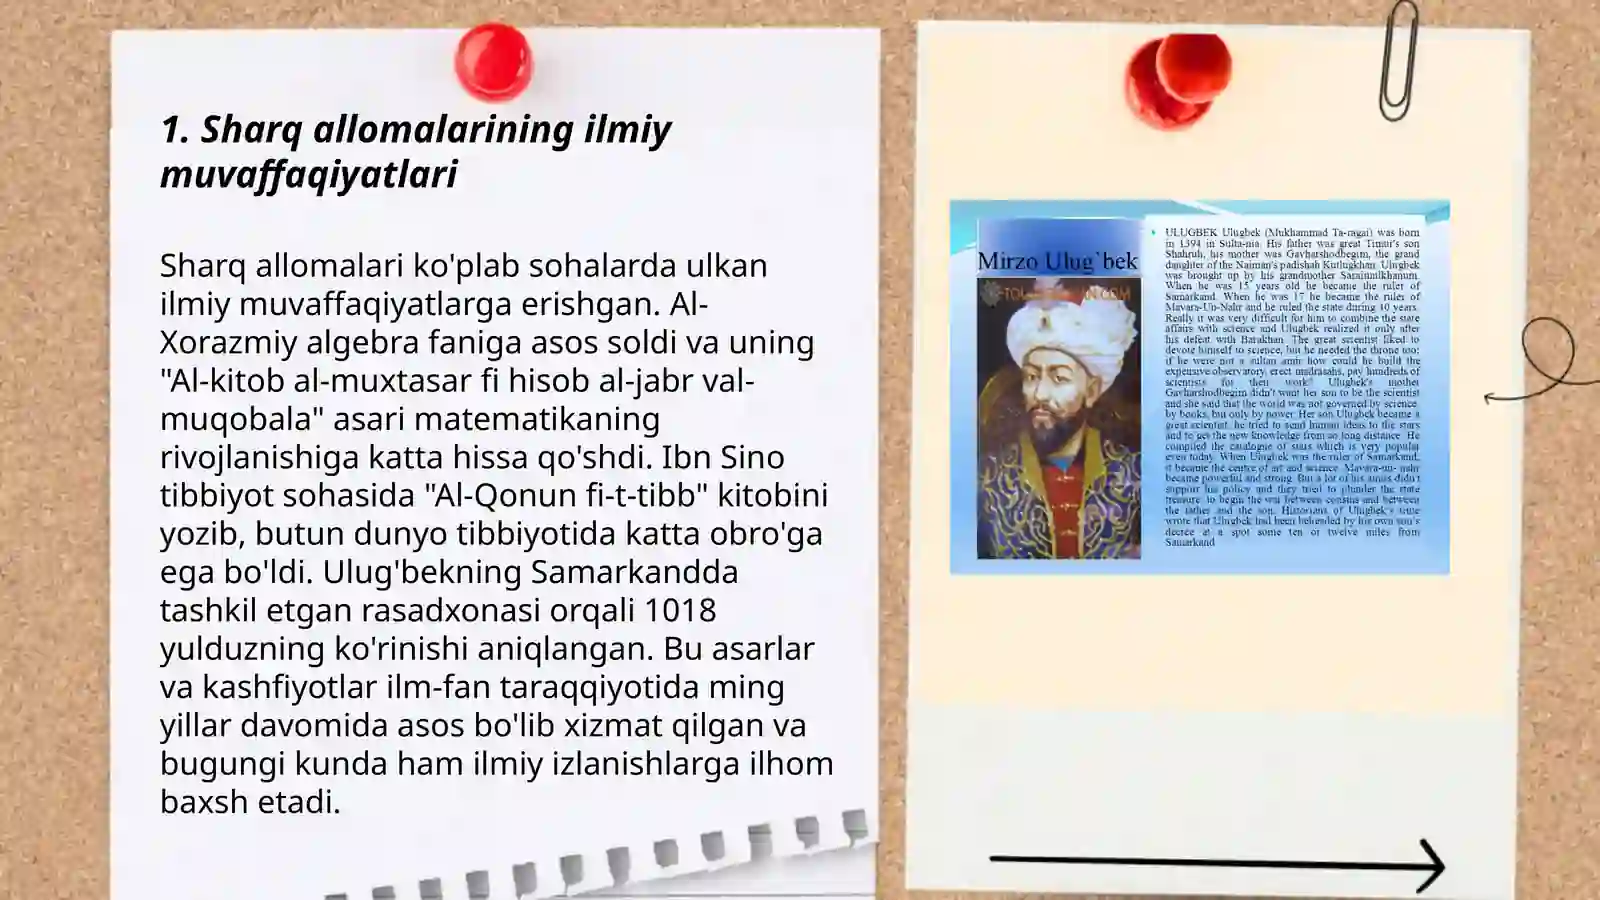 1. Sharq allomalarining ilmiy
muvaffaqiyatlari
Sharq allomalari ko'plab sohalarda ulkan
ilmiy muvaffaqiyatlarga erishgan. Al-
Xorazmiy algebra faniga asos soldi va uning
"Al-kitob al-muxtasar fi hisob al-jabr val-
muqobala" asari matematikaning
rivojlanishiga katta hissa qo'shdi. Ibn Sino
tibbiyot sohasida "Al-Qonun fi-t-tibb" kitobini
yozib, butun dunyo tibbiyotida katta obro'ga
ega bo'ldi. Ulug'bekning Samarkandda
tashkil etgan rasadxonasi orqali 1018
yulduzning ko'rinishi aniqlangan. Bu asarlar
va kashfiyotlar ilm-fan taraqqiyotida ming
yillar davomida asos bo'lib xizmat qilgan va
bugungi kunda ham ilmiy izlanishlarga ilhom
baxsh etadi.
Mirzo Ulug`bek
ULUGBEK Ulugbek (Mukhammad Ta-ragai) was born
in 1394 in Sulta-nia. His father was great Timur's son
Shahruh, his mother was Gavharshodbegim, the grand
daughter of the Naiman's padishah Kutlugkhan. Ulugbek
was brought up by his grandmother Saraimulkhanum.
When he was 15 years old he became the ruler of
Samarkand. When he was 17 he became the ruler of
Mavara-Un-Nahr and he ruled the state during 40 years.
Really it was very difficult for him to combine the state
affairs with science and Ulugbek realized it only after
his defeat with Barakhan. The great scientist liked to
devote himself to science, but he needed the throne too:
if he were not a sultan amir how could he build the
expensive observatory, erect madrasahs, pay hundreds of
scientists for their work? Ulugbek's mother
Gavharshodbegim didn't want her son to be the scientist
and she said that the world was not governed by science,
by books, but only by power. Her son Ulugbek became a
great scientist, he tried to send human ideas to the stars
and to get the new knowledge from so long distance. He
compiled the catalogue of stars which is very popular
even today. When Ulugbek was the ruler of Samarkand,
it became the centre of art and science. Mavara-un- nahr
became powerful and strong. But a lot of his amirs didn't
support his policy and they tried to plunder the state
treasure, to begin the war between cousins and between
the father and the son. Historians of Ulugbek's time
wrote that Ulugbek had been beheaded by his own son's
decree at a spot some ten or twelve miles from
Samarkand